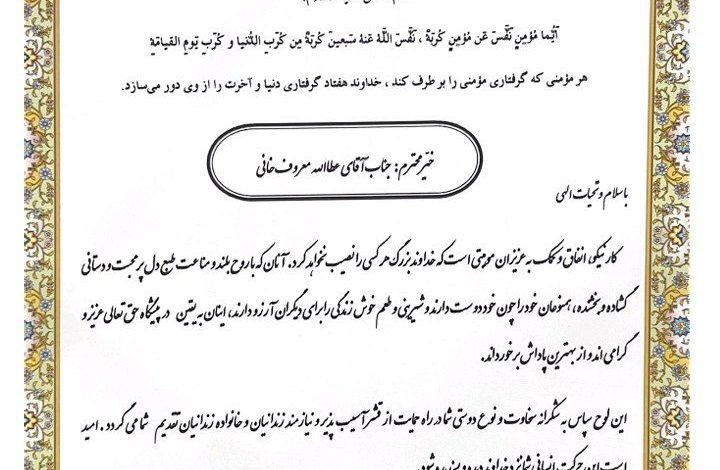 أَیُّما مُؤمِنٍ نَفَّسَ عَن مُؤمِنٍ کُربَةً ، نَفَّسَ اللَّهُ عَنهُ سَبعینَ کُربَةً مِن کُرَبِ الدُّنیا و کُرَبِ یَومِ القیامَةِ
هر مؤمنی که گرفتاری مؤمنی را بر طرف کند ، خداوند هفتاد گرفتاری دنیا و آخرت را از وی دور می‌سازد.
خیّر محترم : جناب آقای عطااله معروف خانی
با سلام و تحیات الهی
کار نیکو، انفاق و کمک به عزیزان موهبتی است که خداوند بزرگ هر کسی را نصیب نخواهد کرد. آنان که با روح بلند و مناعت طبع دل پر محبت و دستانی
گشاده و بخشنده ، همنوعان خود را چون خود دوست دارند و شیرینی و طعم خوش زندگی را برای دیگران آرزو دارند ، اینان به یقین در پیشگاه حق تعالی عزیز و
گرامی اند و از بهترین پاداش برخوردارند.
این لوح سپاس به شکرانه سخاوت و نوع دوستی شما در راه حمایت از قشر آسیب پذیر و نیازمند زندانیان و خانواده زندانیان تقدیم شما می گردد . امید
است این حرکت انسانی شما نزد خداوند